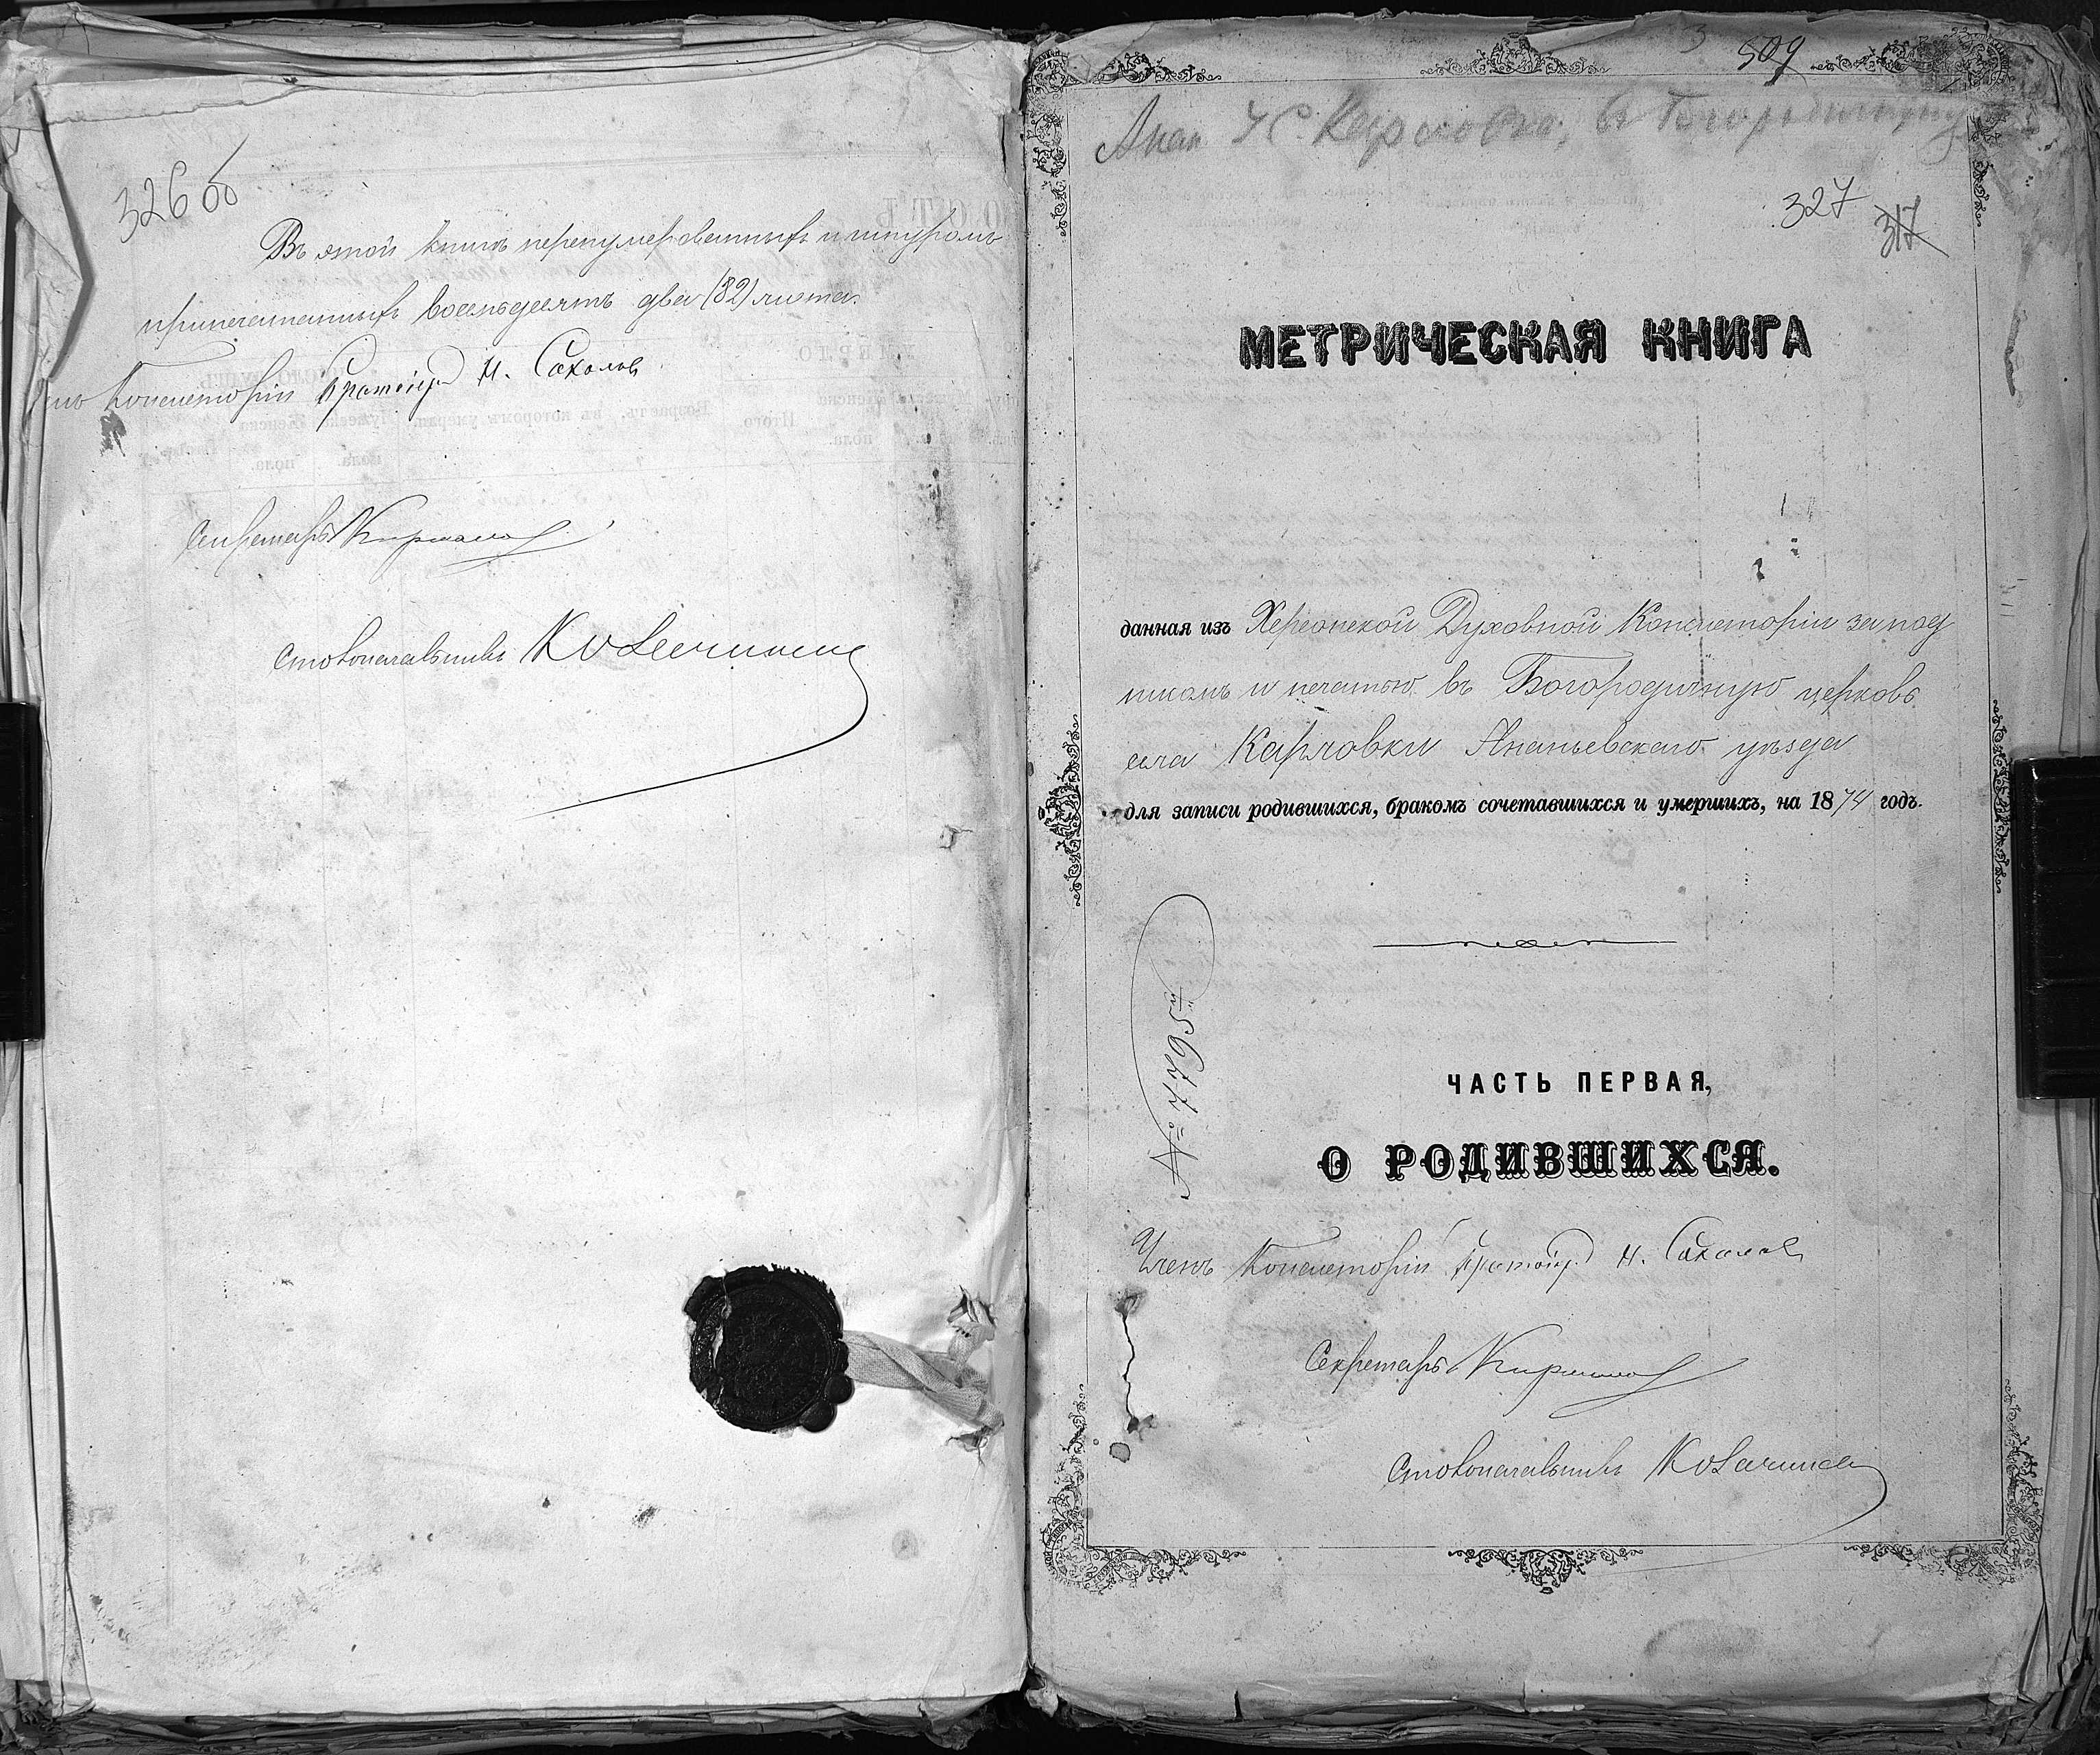 326 об
Въ этой книгѣ перенумерованныхъ и шнуромъ
припечатанныхъ восемьдесятъ два (82) листа.
Консисторіи Протоіер. Н. Соколовъ
Секретарь
Столоначальникъ
3
509
Анан. у с Карловка, Богородичную
327
317
МЕТРИЧЕСКАЯ КНИГА
данная изъ Херсонской Духовной Консисторіи за под
писомъ и печатью въ Богородичную церковь
села Карловки Ананьевскаго уѣзда
для записи родившихся, бракомъ сочетавшихся и умершихъ, на 1874 годъ.
№ 7795
ЧАСТЬ ПЕРВАЯ,
О РОДИВШИХСЯ.
Членъ Консисторіи Протоіер. Н. Соколовъ
Секретарь
Столоначальникъ